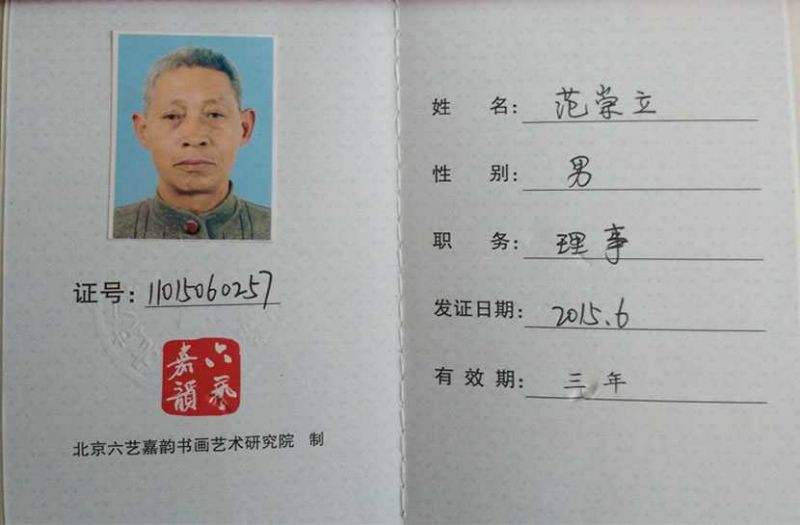 证号: 11015060257
六艺
嘉韻
北京六艺嘉韵书画艺术研究院 制
姓 名: 范 立
性 别: 男
职 务: 理事
发证日期: 2015.6
有 效 期: 三年